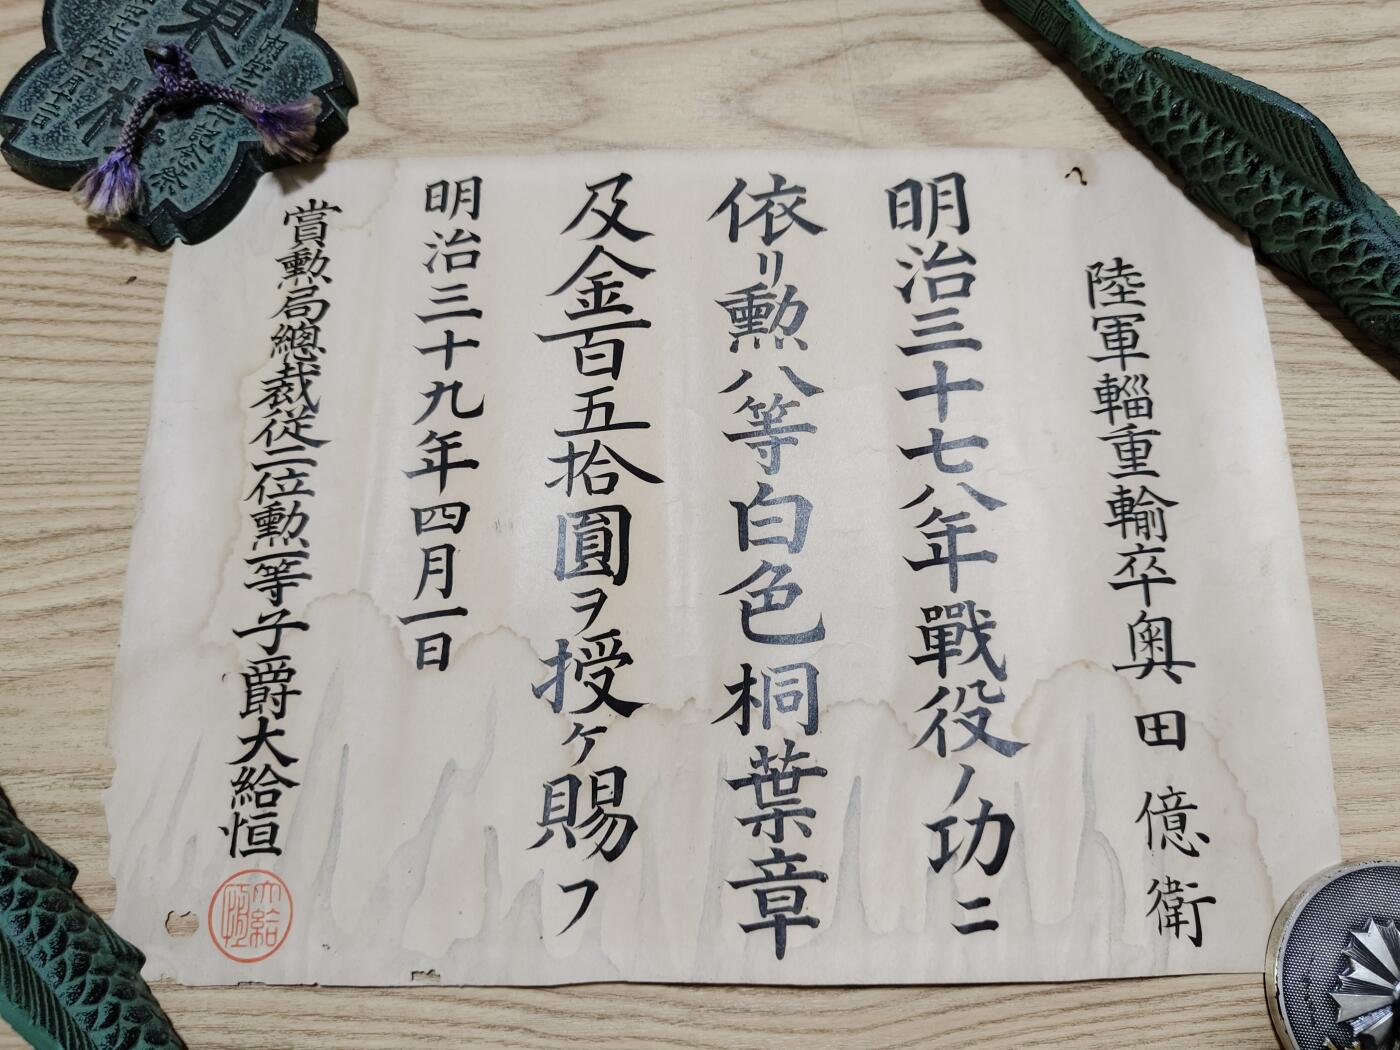 陸軍輜重輸卒奥田億衛
明治三十七八年戰役ノ功ニ
依リ勲八等白色桐葉章
及金百五拾圓ヲ授ケ賜フ
明治三十九年四月一日
賞勲局總裁從二位勲一等子爵大給恒
大給恒
記念祭